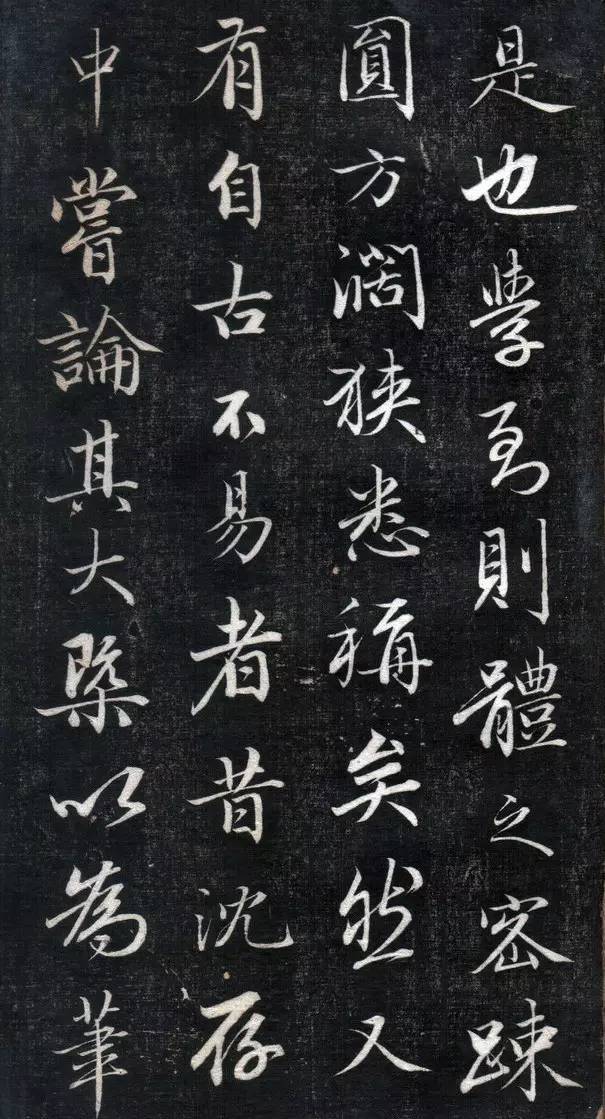 是也學到則體之密疎
圓方濶狭悉稱矣然又
有自古不易者昔沈存
中嘗論其大槩以為筆